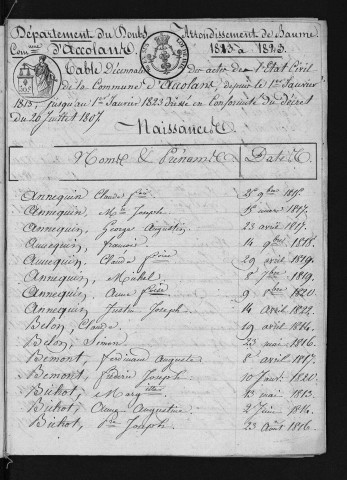 Département du Doubs Arrondissement de Baume
Com.une d'Accolans 1813 à 1823.
Table Décennale des actes de l'Etat Civil
de la Commune d'Accolans, depuis le 1er Janvier
1813, jusqu'au 1er Janvier 1823 dressé en Conformité du décret
du 20 Juillet 1807.
Naissances
Noms & Prénoms Dates
Annequin, Claude f.ois 9bre
Annequin, M.ie Joseph 1817.
Annequin, George Augustin 23 avril 1817.
Annequin, francois 14 9bre 1818.
Annequin, Claude f.oise 29 avril 1819.
Annequin, Michel 8 7bre 1819.
Annequin, Anne f.oise 9 8bre 1820.
Annequin, Justin Joseph 14 avril 1822.
Belon, Claude 19 avril 1814.
Belon, Simon 23 mai 1816.
Bemont, ferdinand Auguste 8 avril 1817.
Bemont, frédéric Joseph 10 Janv. 1820.
Bichot, Marg.ritte 13 mai 1813.
Bichot, Anne Augustine 2 Juin 1814.
Bichot, P.re Joseph 23 Août 1816.